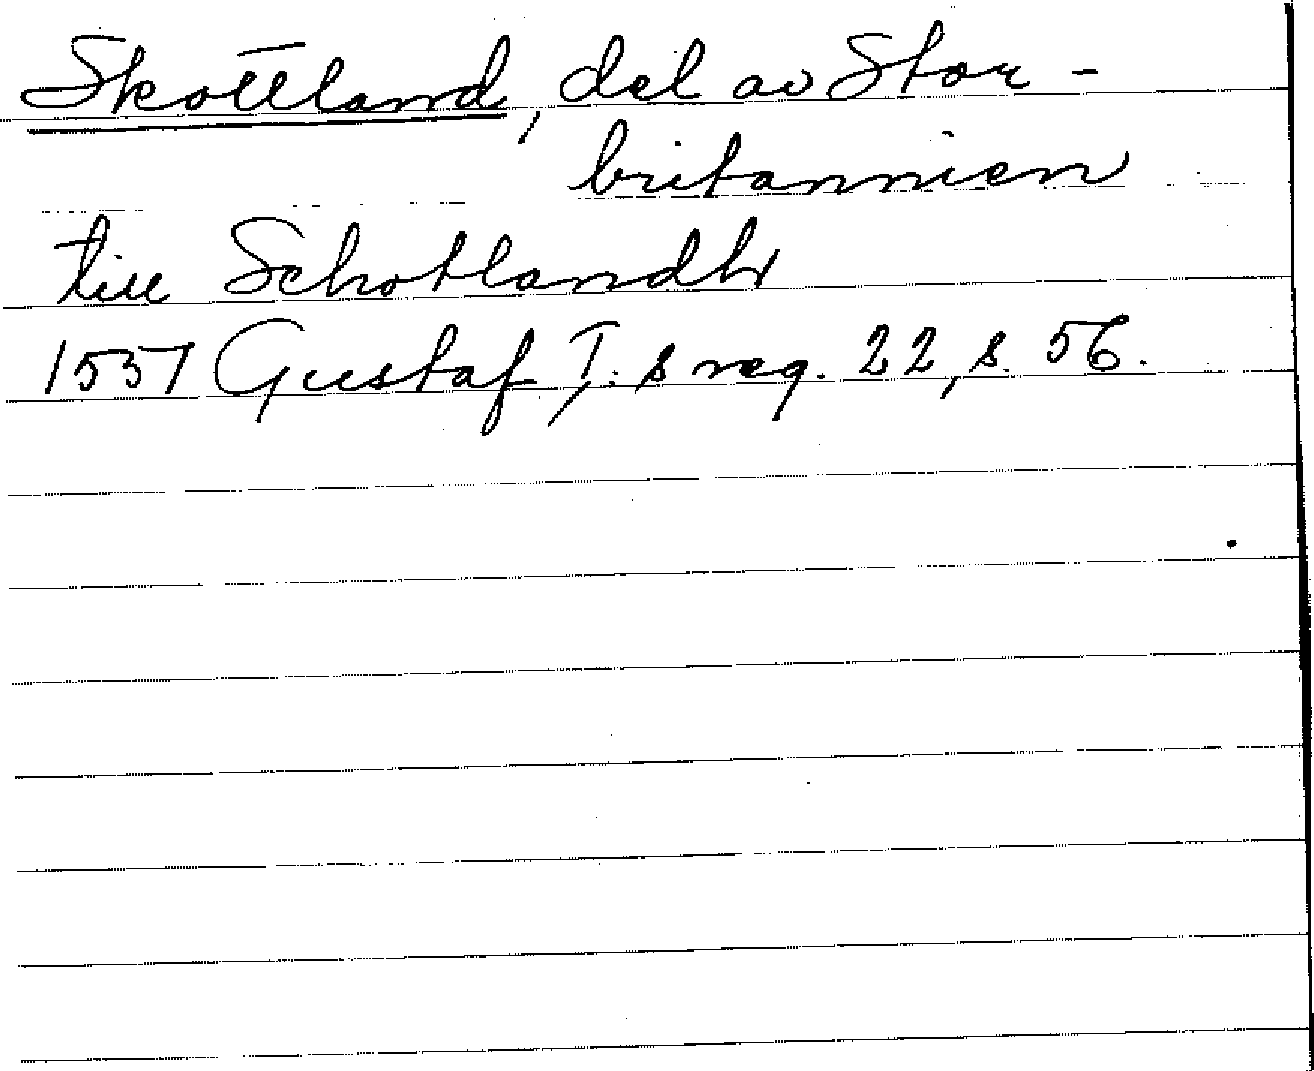 Skottland, del av Stor-
britannien
till Schotlandh
1551 Gustaf I:s reg. 22, s. 56.